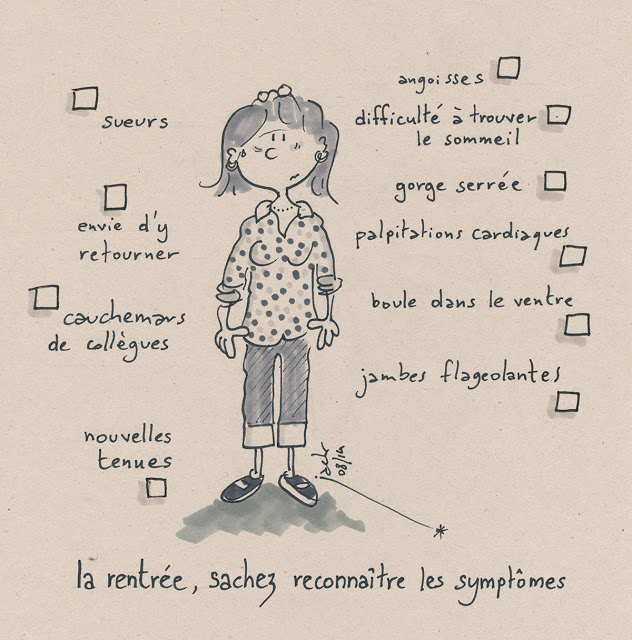 sueurs
envie d'y
retourner
cauchemars
de collègues
nouvelles
tenues
angoisses
difficulté à trouver
le sommeil
gorge serrée
palpitations cardiaques
boule dans le ventre
jambes flageolantes
08/14
*
la rentrée, sachez reconnaître les symptômes